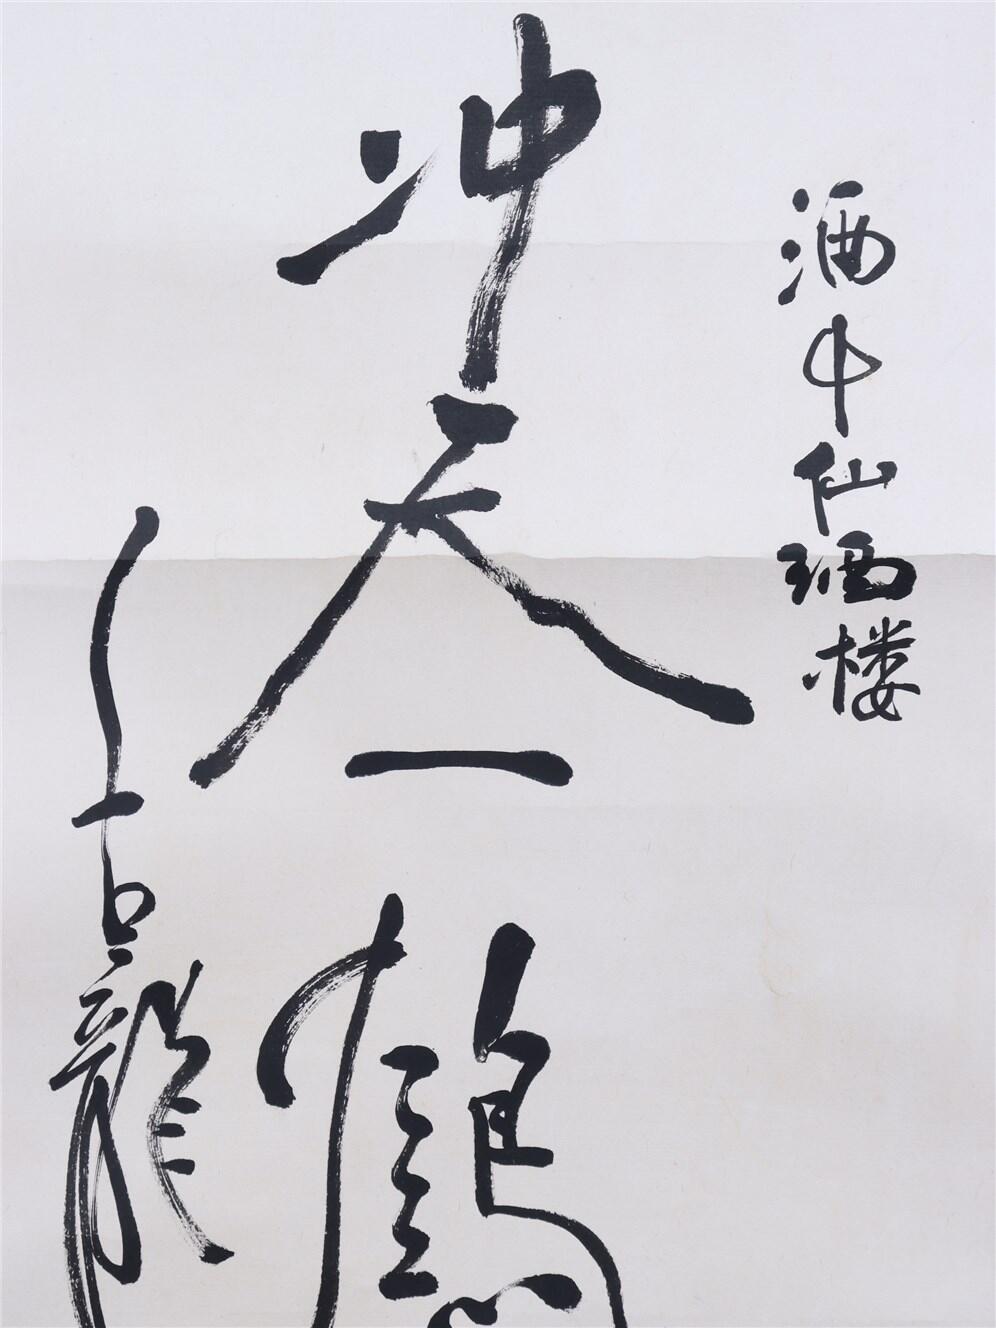 酒中仙酒楼
冲天一鶴
古龍